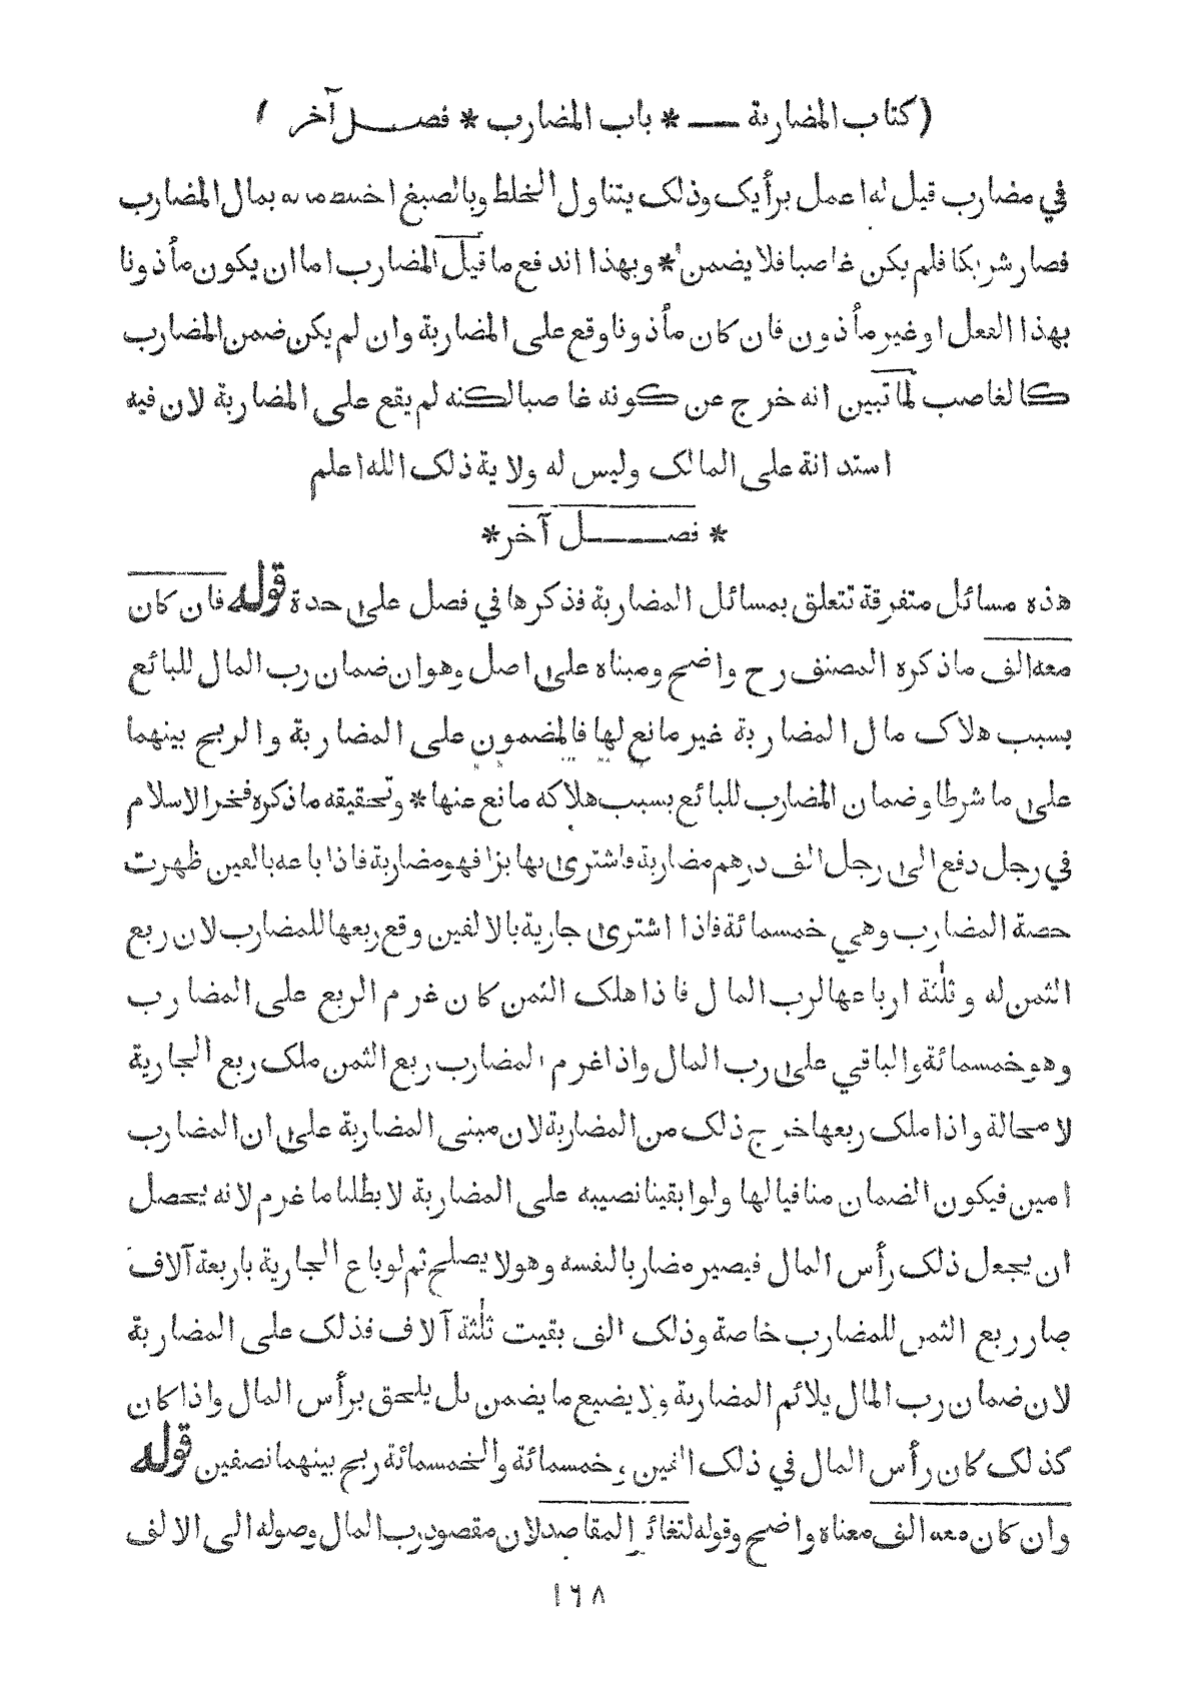 (كتاب المضاربة — * باب المضارب * فصل آخر)
في مضارب قيل له اعمل برأيك وذلك يتناول الخلط وبالصبغ اختلط ماله بمال المضارب
فصار شريكا فلم يكن غاصبا فلا يضمن * وبهذا اندفع ما قيل المضارب اما ان يكون مأذونا
بهذا الفعل او غير مأذون فان كان مأذونا وقع على المضاربة وان لم يكن ضمن المضارب
كالغاصب لما تبين انه خرج عن كونه غاصبا لكنه لم يقع على المضاربة لان فيه
استدانة على المالك وليس له ولاية ذلك الله اعلم
* فصل آخر *
هذه مسائل متفرقة تتعلق بمسائل المضاربة فذكرها في فصل على حدة قوله فان كان
معه الف ما ذكره المصنف رح واضح ومبناه على اصل وهو ان ضمان رب المال للبائع
بسبب هلاك مال المضاربة غير مانع لها فالمضمون على المضاربة والربح بينهما
على ما شرطا وضمان المضارب للبائع بسبب هلاكه مانع عنها * وتحقيقه ما ذكره فخر الاسلام
في رجل دفع الى رجل الف درهم مضاربة فاشترى بها بزا فهو مضاربة فاذا باعه بالفين ظهرت
حصة المضارب وهي خمسمائة فاذا اشترى جارية بالالفين وقع ربعها للمضارب لان ربع
الثمن له وثلثة ارباعها لرب المال فاذا هلك الثمن كان غرم الربع على المضارب
وهو خمسمائة والباقي على رب المال واذا غرم المضارب ربع الثمن ملك ربع الجارية
لا محالة واذا ملك ربعها خرج ذلك من المضاربة لان مبنى المضاربة على ان المضارب
امين فيكون الضمان منافيا لها ولو ابقينا نصيبه على المضاربة لابطلنا ما غرم لانه يحصل
ان يجعل ذلك رأس المال فيصير مضاربا لنفسه وهو لا يصلح ثم لو باع الجارية باربعة آلاف
صار ربع الثمن للمضارب خاصة وذلك الف بقيت ثلثة آلاف فذلك على المضاربة
لان ضمان رب المال يلائم المضاربة ولا يضيع ما يضمن بل يلحق برأس المال واذا كان
كذلك كان رأس المال في ذلك الفين وخمسمائة والخمسمائة ربح بينهما نصفين قوله
وان كان معه الف معناه واضح وقوله لتغائر المقاصد لان مقصود رب المال وصوله الى الالف
١٦٨